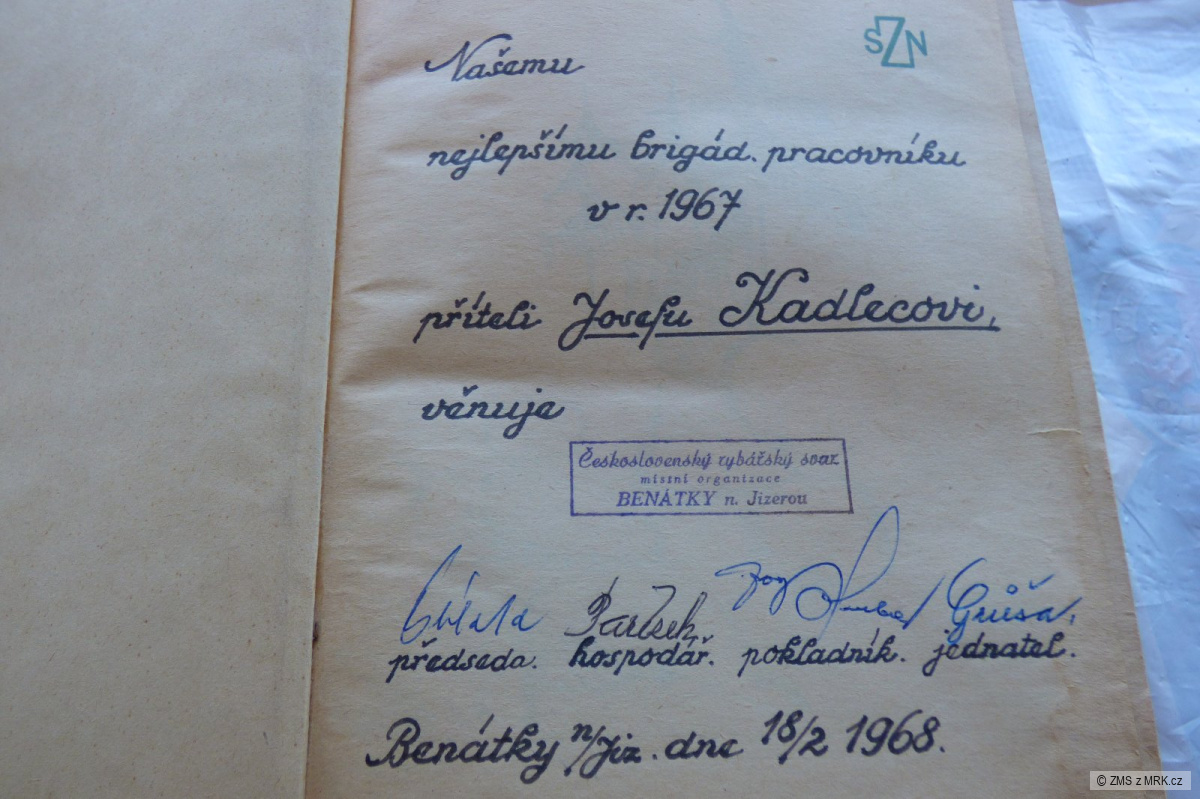 SZN
Našemu
nejlepšímu brigád. pracovníku
v r. 1967
příteli Josefu Kadlecovi,
věnuje
Československý rybářský svaz
místní organizace
BENÁTKY n. Jizerou
Grůša,
předseda. hospodář. pokladník. jednatel.
Benátky n/Jiz. dne 18/2 1968.
© ZMS z MRK.cz